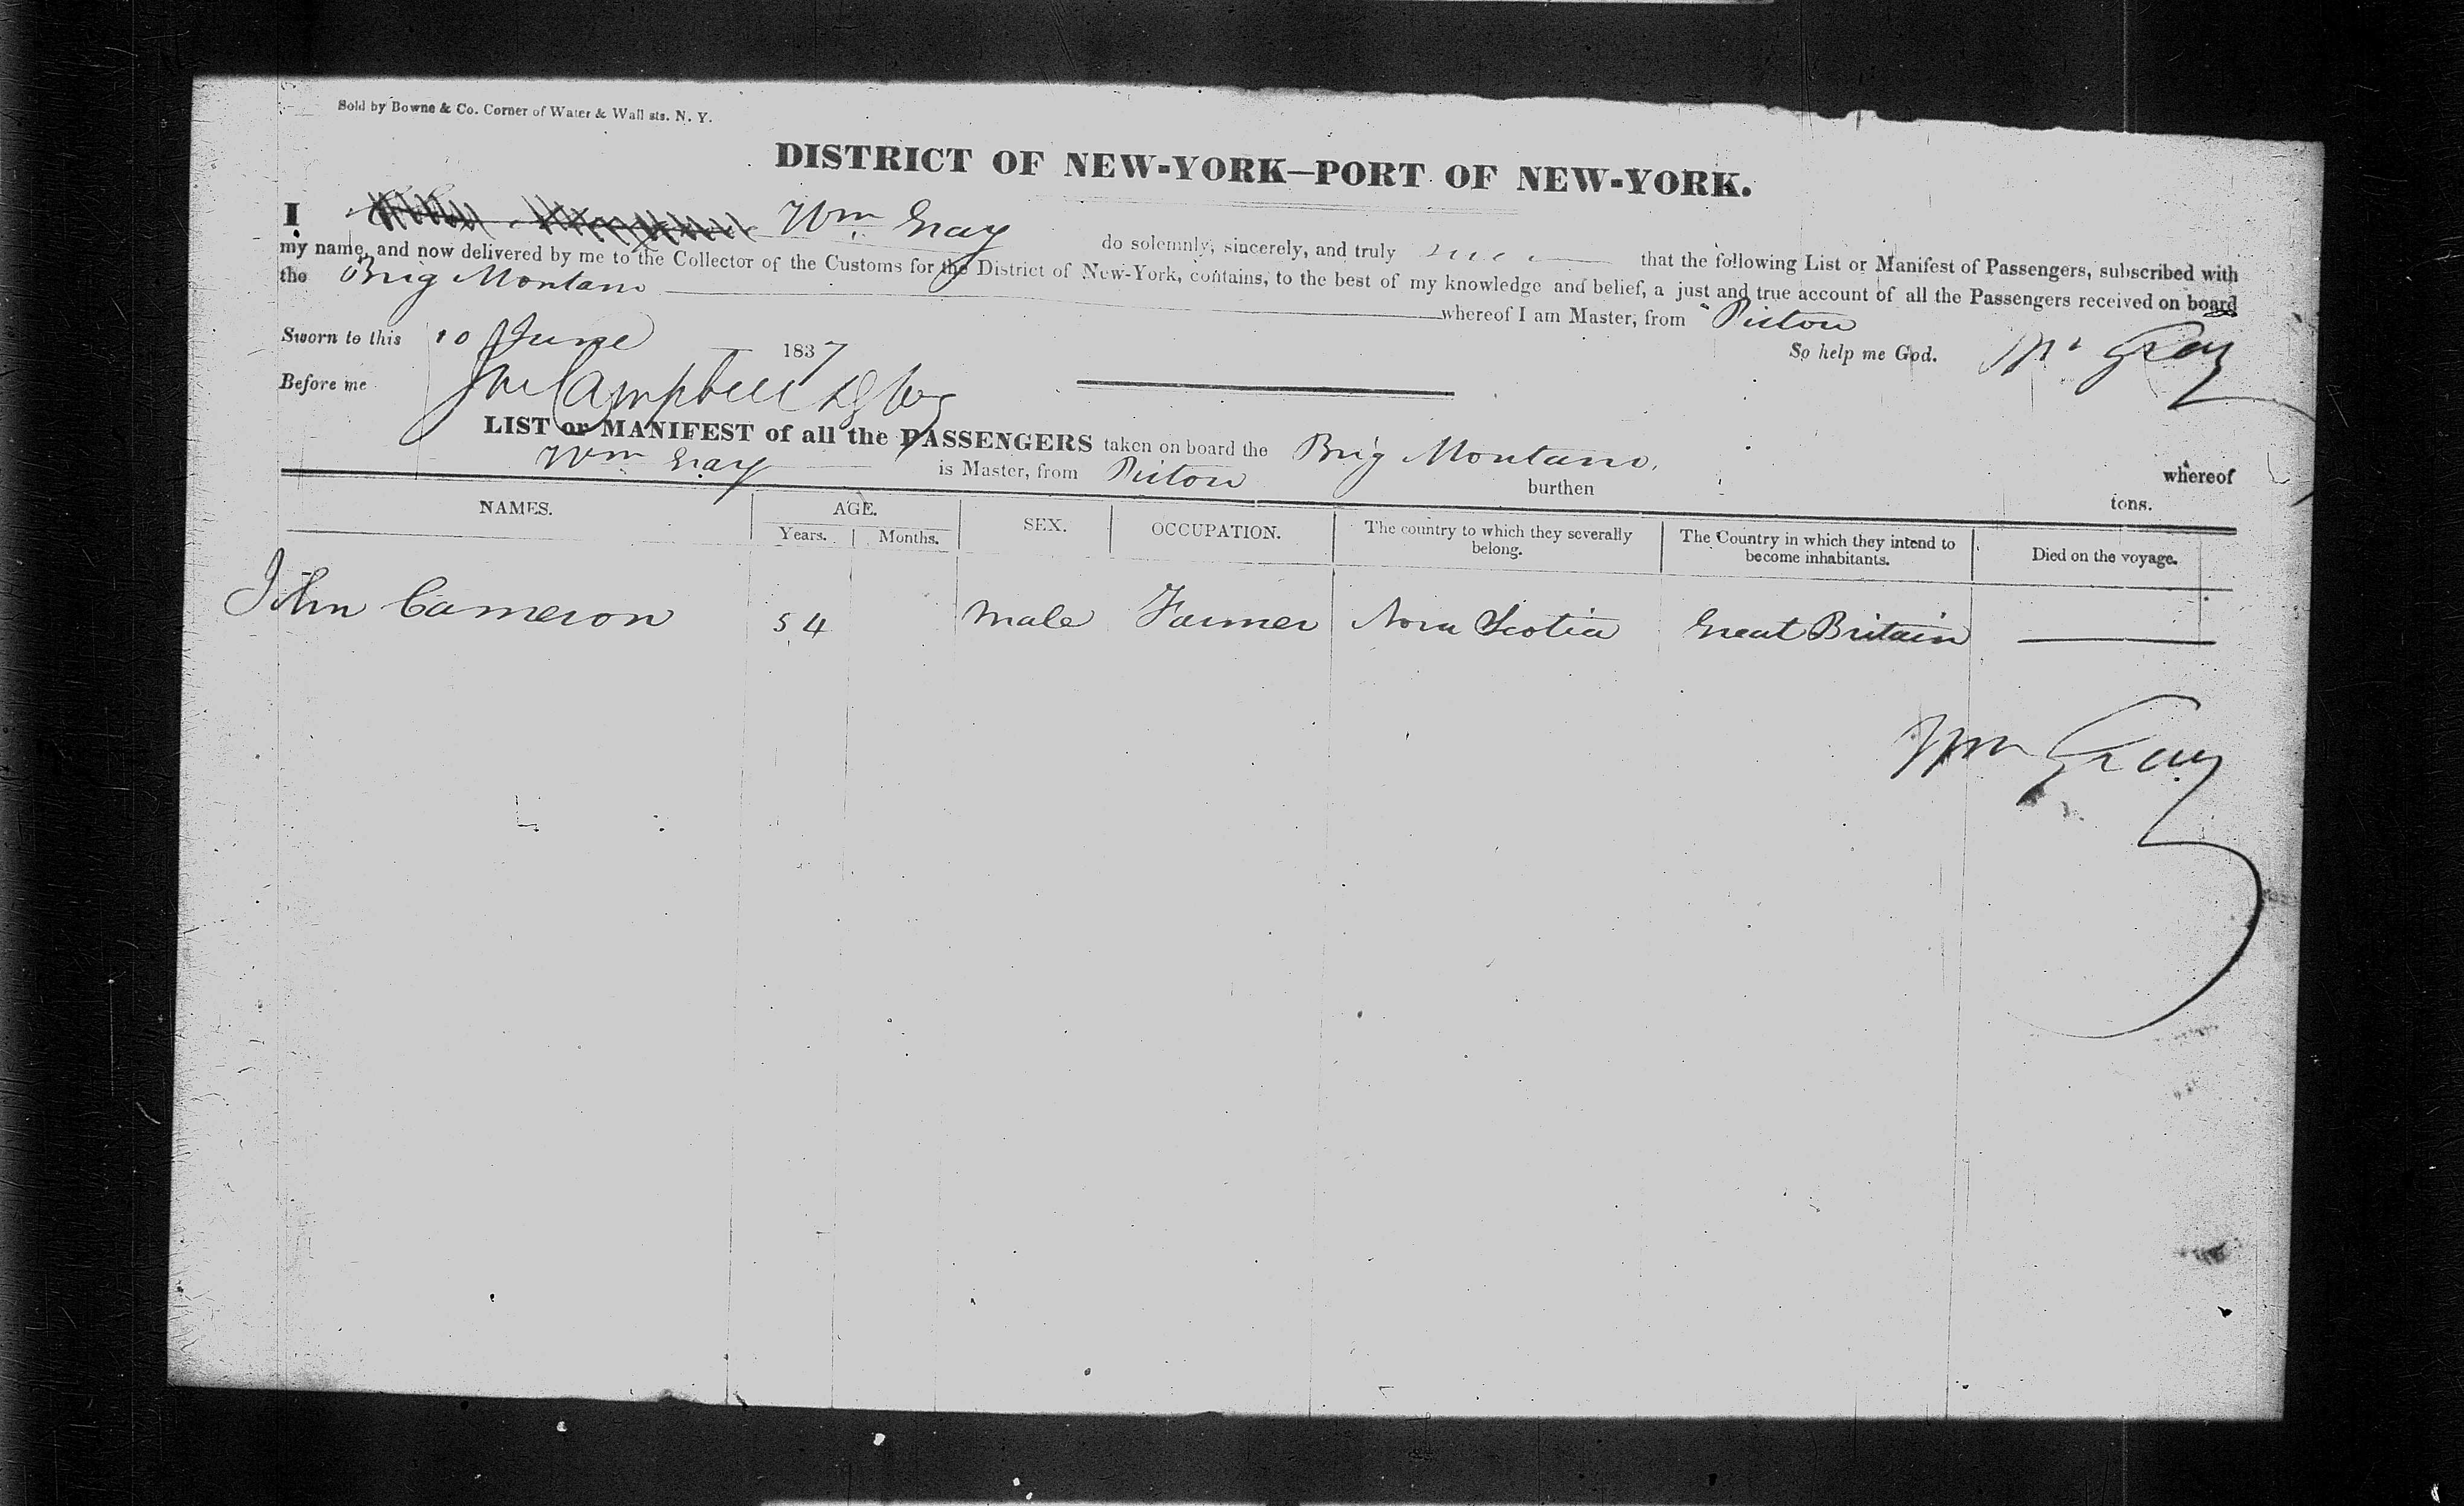 Sold by Bowne & Co. Corner of Water & Wall sts. N. Y.
DISTRICT OF NEW-YORK—PORT OF NEW-YORK.
I Wm Gray do solemnly, sincerely, and truly that the following List or Manifest of Passengers, subscribed with
my name, and now delivered by me to the Collector of the Customs for the District of New-York, contains, to the best of my knowledge and belief, a just and true account of all the Passengers received on board
the Brig Montano whereof I am Master, from Pictou
Sworn to this 10 June 1837 So help me God. Wm Gray
Before me Campbell
LIST or MANIFEST of all the PASSENGERS taken on board the Brig Montano, whereof
Wm Gray is Master, from Pictou burthen tons.
NAMES. AGE. SEX. OCCUPATION. The country to which they severally belong. The Country in which they intend to become inhabitants. Died on the voyage.
Years. Months.
John Cameron 54 male Farmer Nova Scotia Great Britain
Wm Gray